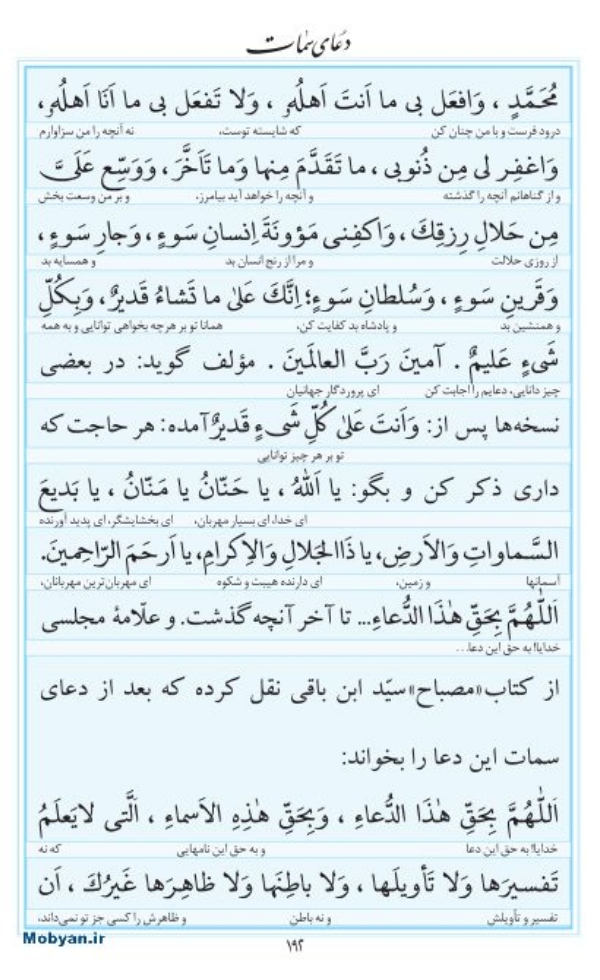 دعای سمات
مُحَمَّدٍ ، وَافعَل بی ما اَنتَ اَهلُهُ ، وَلا تَفعَل بی ما اَنَا اَهلُهُ ،
درود فرست و با من چنان کن که شایسته توست، نه آنچه را من سزاوارم
وَاغفِر لی مِن ذُنوبی ، ما تَقَدَّمَ مِنها وَما تَاَخَّرَ ، وَوَسِّع عَلَیَّ
و از گناهانم آنچه را گذشته و آنچه را خواهد آید بیامرز، و بر من وسعت بخش
مِن حَلالِ رِزقِكَ ، وَاكفِنی مَؤونَةَ اِنسانِ سَوءٍ ، وَجارِ سَوءٍ ،
از روزی حلالت و مرا از رنج انسان بد و همسایه بد
وَقَرینِ سَوءٍ ، وَسُلطانِ سَوءٍ؛ اِنَّكَ عَلیٰ ما تَشاءُ قَدیرٌ، وَبِكُلِّ
و همنشین بد و پادشاه بد کفایت کن، همانا تو بر هرچه بخواهی توانایی و به همه
شَیءٍ عَلیمٌ . آمینَ رَبَّ العالَمینَ . مؤلف گوید: در بعضی
چیز دانایی، دعایم را اجابت کن ای پروردگار جهانیان
نسخه‌ها پس از: وَاَنتَ عَلیٰ كُلِّ شَیءٍ قَدیرٌ آمده: هر حاجت که
تو بر هر چیز توانایی
داری ذکر کن و بگو: یا اَللّٰهُ ، یا حَنّانُ یا مَنّانُ ، یا بَدیعَ
ای خدا، ای بسیار مهربان، ای بخشایشگر، ای پدید آورنده
السَّماواتِ وَالاَرضِ، یا ذَا الجَلالِ وَالاِكرامِ، یا اَرحَمَ الرّاحِمینَ.
آسمانها و زمین، ای دارنده هیبت و شکوه ای مهربان‌ترین مهربانان،
اَللّٰهُمَّ بِحَقِّ هٰذَا الدُّعاءِ... تا آخر آنچه گذشت. و علّامۀ مجلسی
خدایا! به حق این دعا...
از کتاب «مصباح» سیّد ابن باقی نقل کرده که بعد از دعای
سمات این دعا را بخواند:
اَللّٰهُمَّ بِحَقِّ هٰذَا الدُّعاءِ ، وَبِحَقِّ هٰذِهِ الاَسماءِ ، اَلَّتی لایَعلَمُ
خدایا! به حق این دعا و به حق این نامهایی که نه
تَفسیرَها وَلا تَأویلَها ، وَلا باطِنَها وَلا ظاهِرَها غَیرُكَ ، اَن
تفسیر و تأویلش و نه باطن و ظاهرش را کسی جز تو نمی‌داند،
Mobyan.ir
۱۹۲